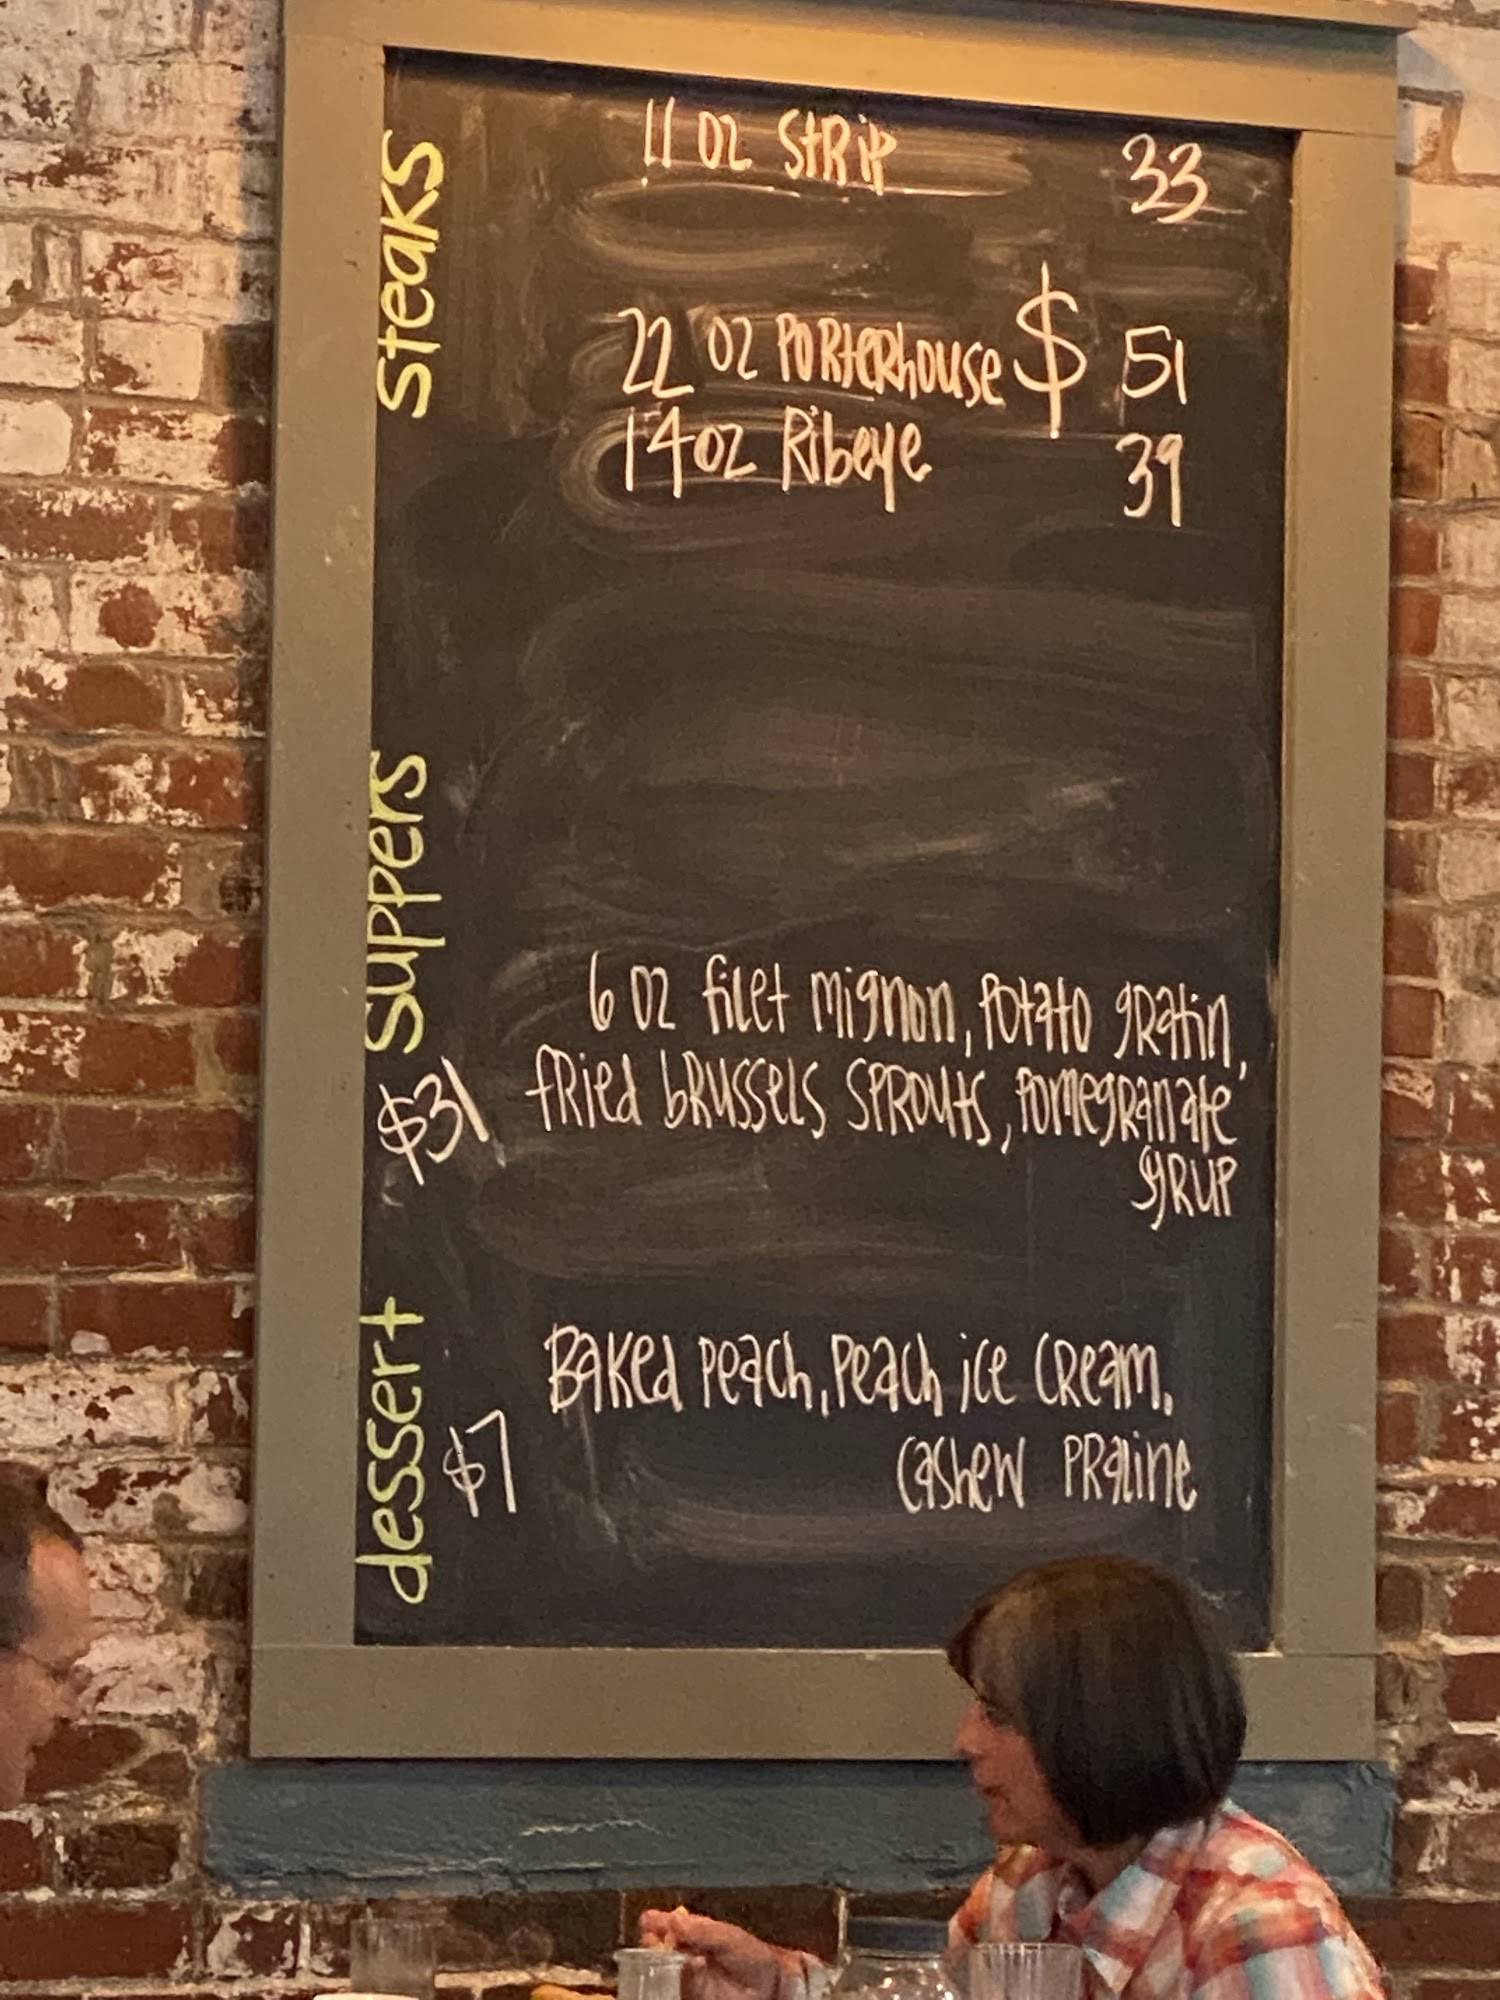 steaks
11 oz Strip 33
22 oz Porterhouse $ 51
14 oz Ribeye 39
suppers
$31
6 oz filet mignon, potato gratin,
fried brussels sprouts, pomegranate
syrup
dessert
$7
Baked peach, peach ice cream,
cashew praline